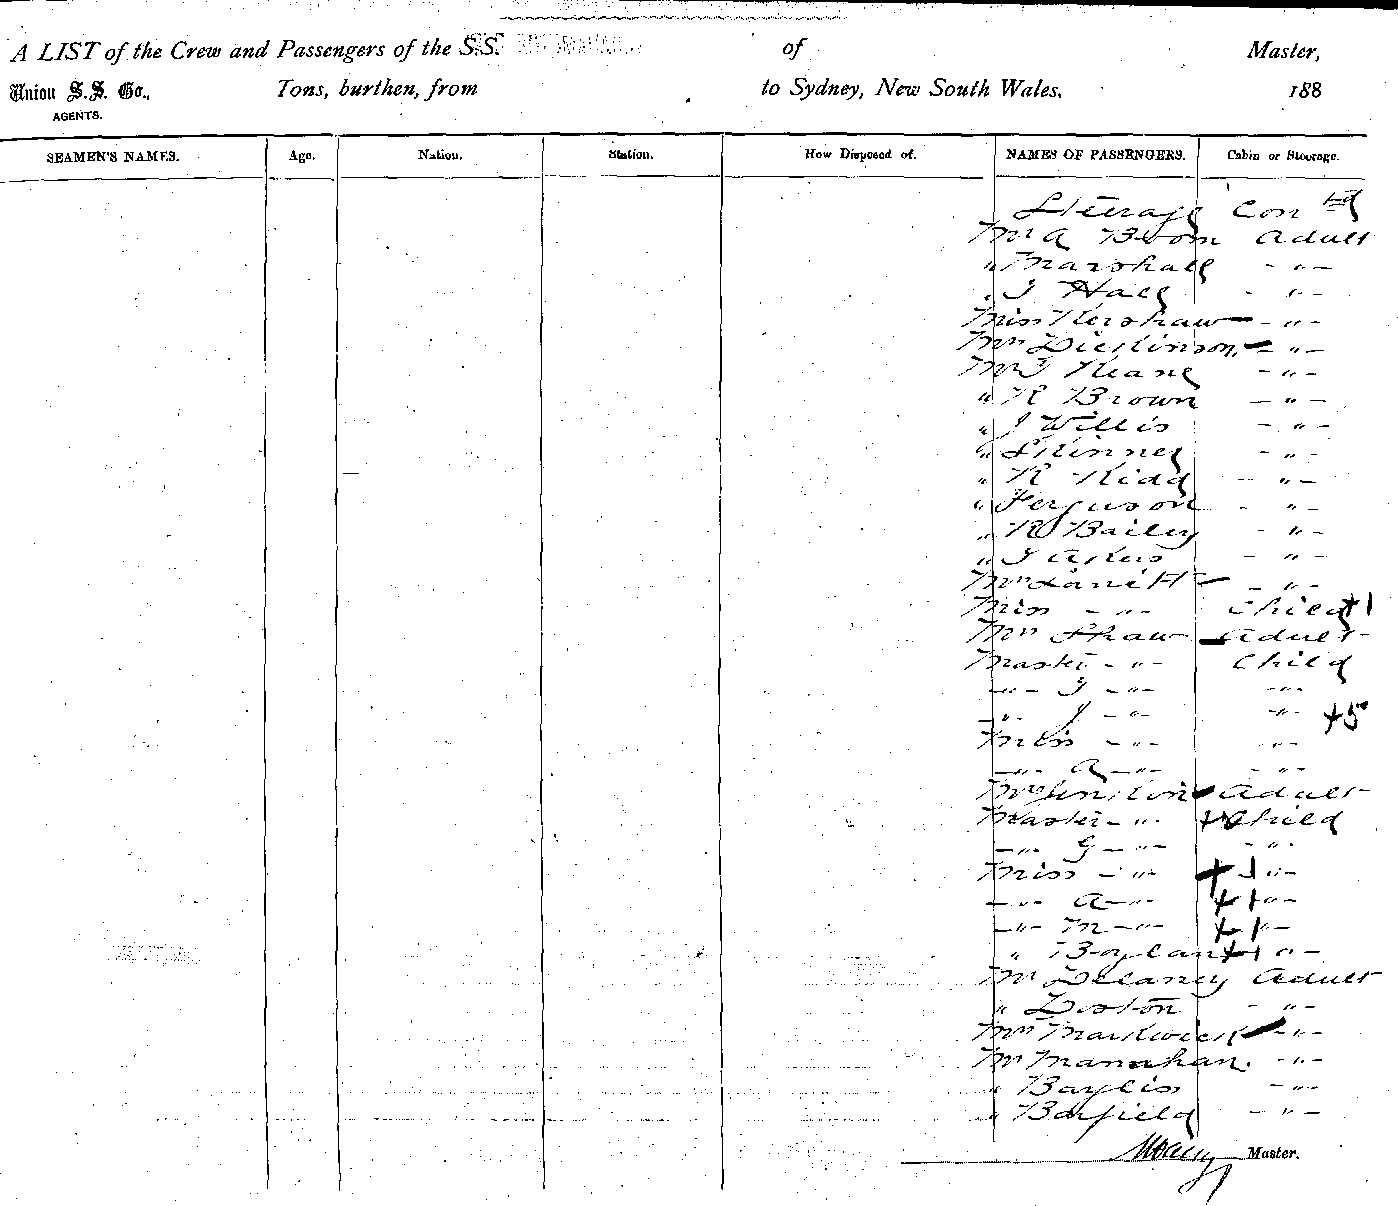 A LIST of the Crew and Passengers of the S.S. of Master,
Union S.S. Co., Tons, burthen, from to Sydney, New South Wales. 188
AGENTS.
SEAMEN'S NAMES. Age. Nation. Station. How Disposed of. NAMES OF PASSENGERS. Cabin or Steerage.
Steerage Con td
Mr A Broom Adult
" Marshall - " -
" J Hall - " -
Miss Kershaw - " -
Mrs Dickinson - " -
Mr J Keane - " -
" R Brown - " -
" J Willis - " -
" Skinner - " -
" R Kidd - " -
" Ferguson - " -
" R Bailey - " -
" J Akers - " -
Mrs - " -
Miss - " - Child +1
Mrs Shaw Adult
Master - " - Child
- " - J - " - - " -
- " - J - " - - " - +5
Miss - " - - " -
- " - A - " - - " -
Mrs Adult
Master - " - Child
- " - G - " - - " -
Miss - " - +1 " -
- " - A - " - +1 " -
- " - M - " - +1 " -
" Boylan +1 " -
Mr Delaney Adult
" Doston - " -
Mrs Markwick - " -
Mr Manahan - " -
" Baylis - " -
" Barfield - " -
Master.